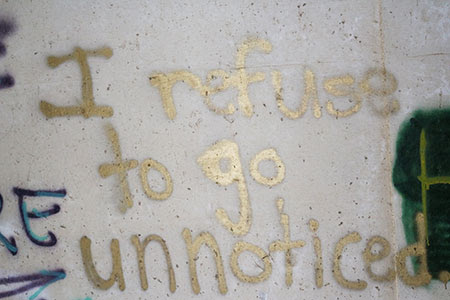 I refuse
to go
unnoticed.
RE